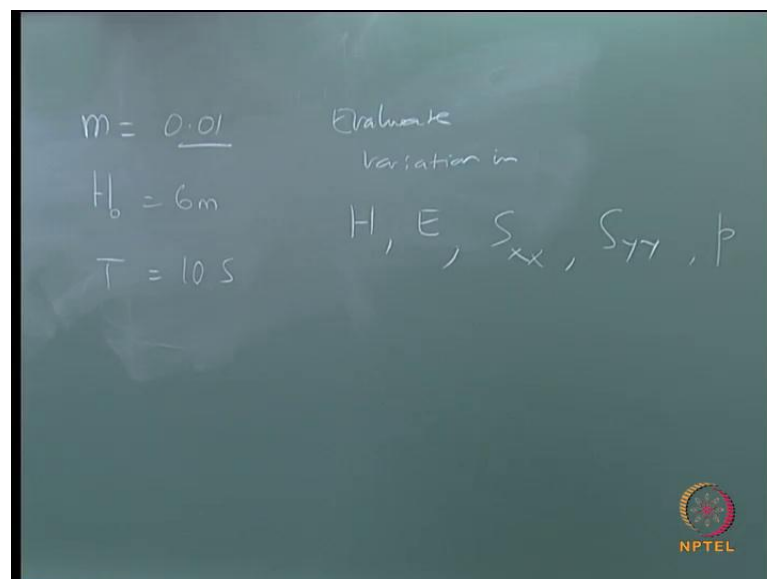 m = 0.01
H₀ = 6m
T = 10 S
Evaluate
variation in
H, E, Sxx, Syy, p
NPTEL